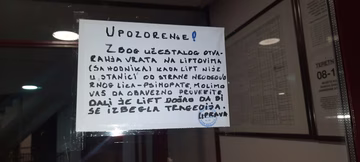 UPOZORENJE!
ZBOG UČESTALOG OTVA-
RANJA VRATA NA LIFTOVIMA
(SA HODNIKA) KADA LIFT NIJE
U STANICI OD STRANE NEODGOVOR
NOG LICA-PSIHOPATE, MOLIMO
VAS DA OBAVEZNO PROVERITE,
DALI JE LIFT DOŠAO DA BI
SE IZBEGLA TRAGEDIJA.
UPRAVA